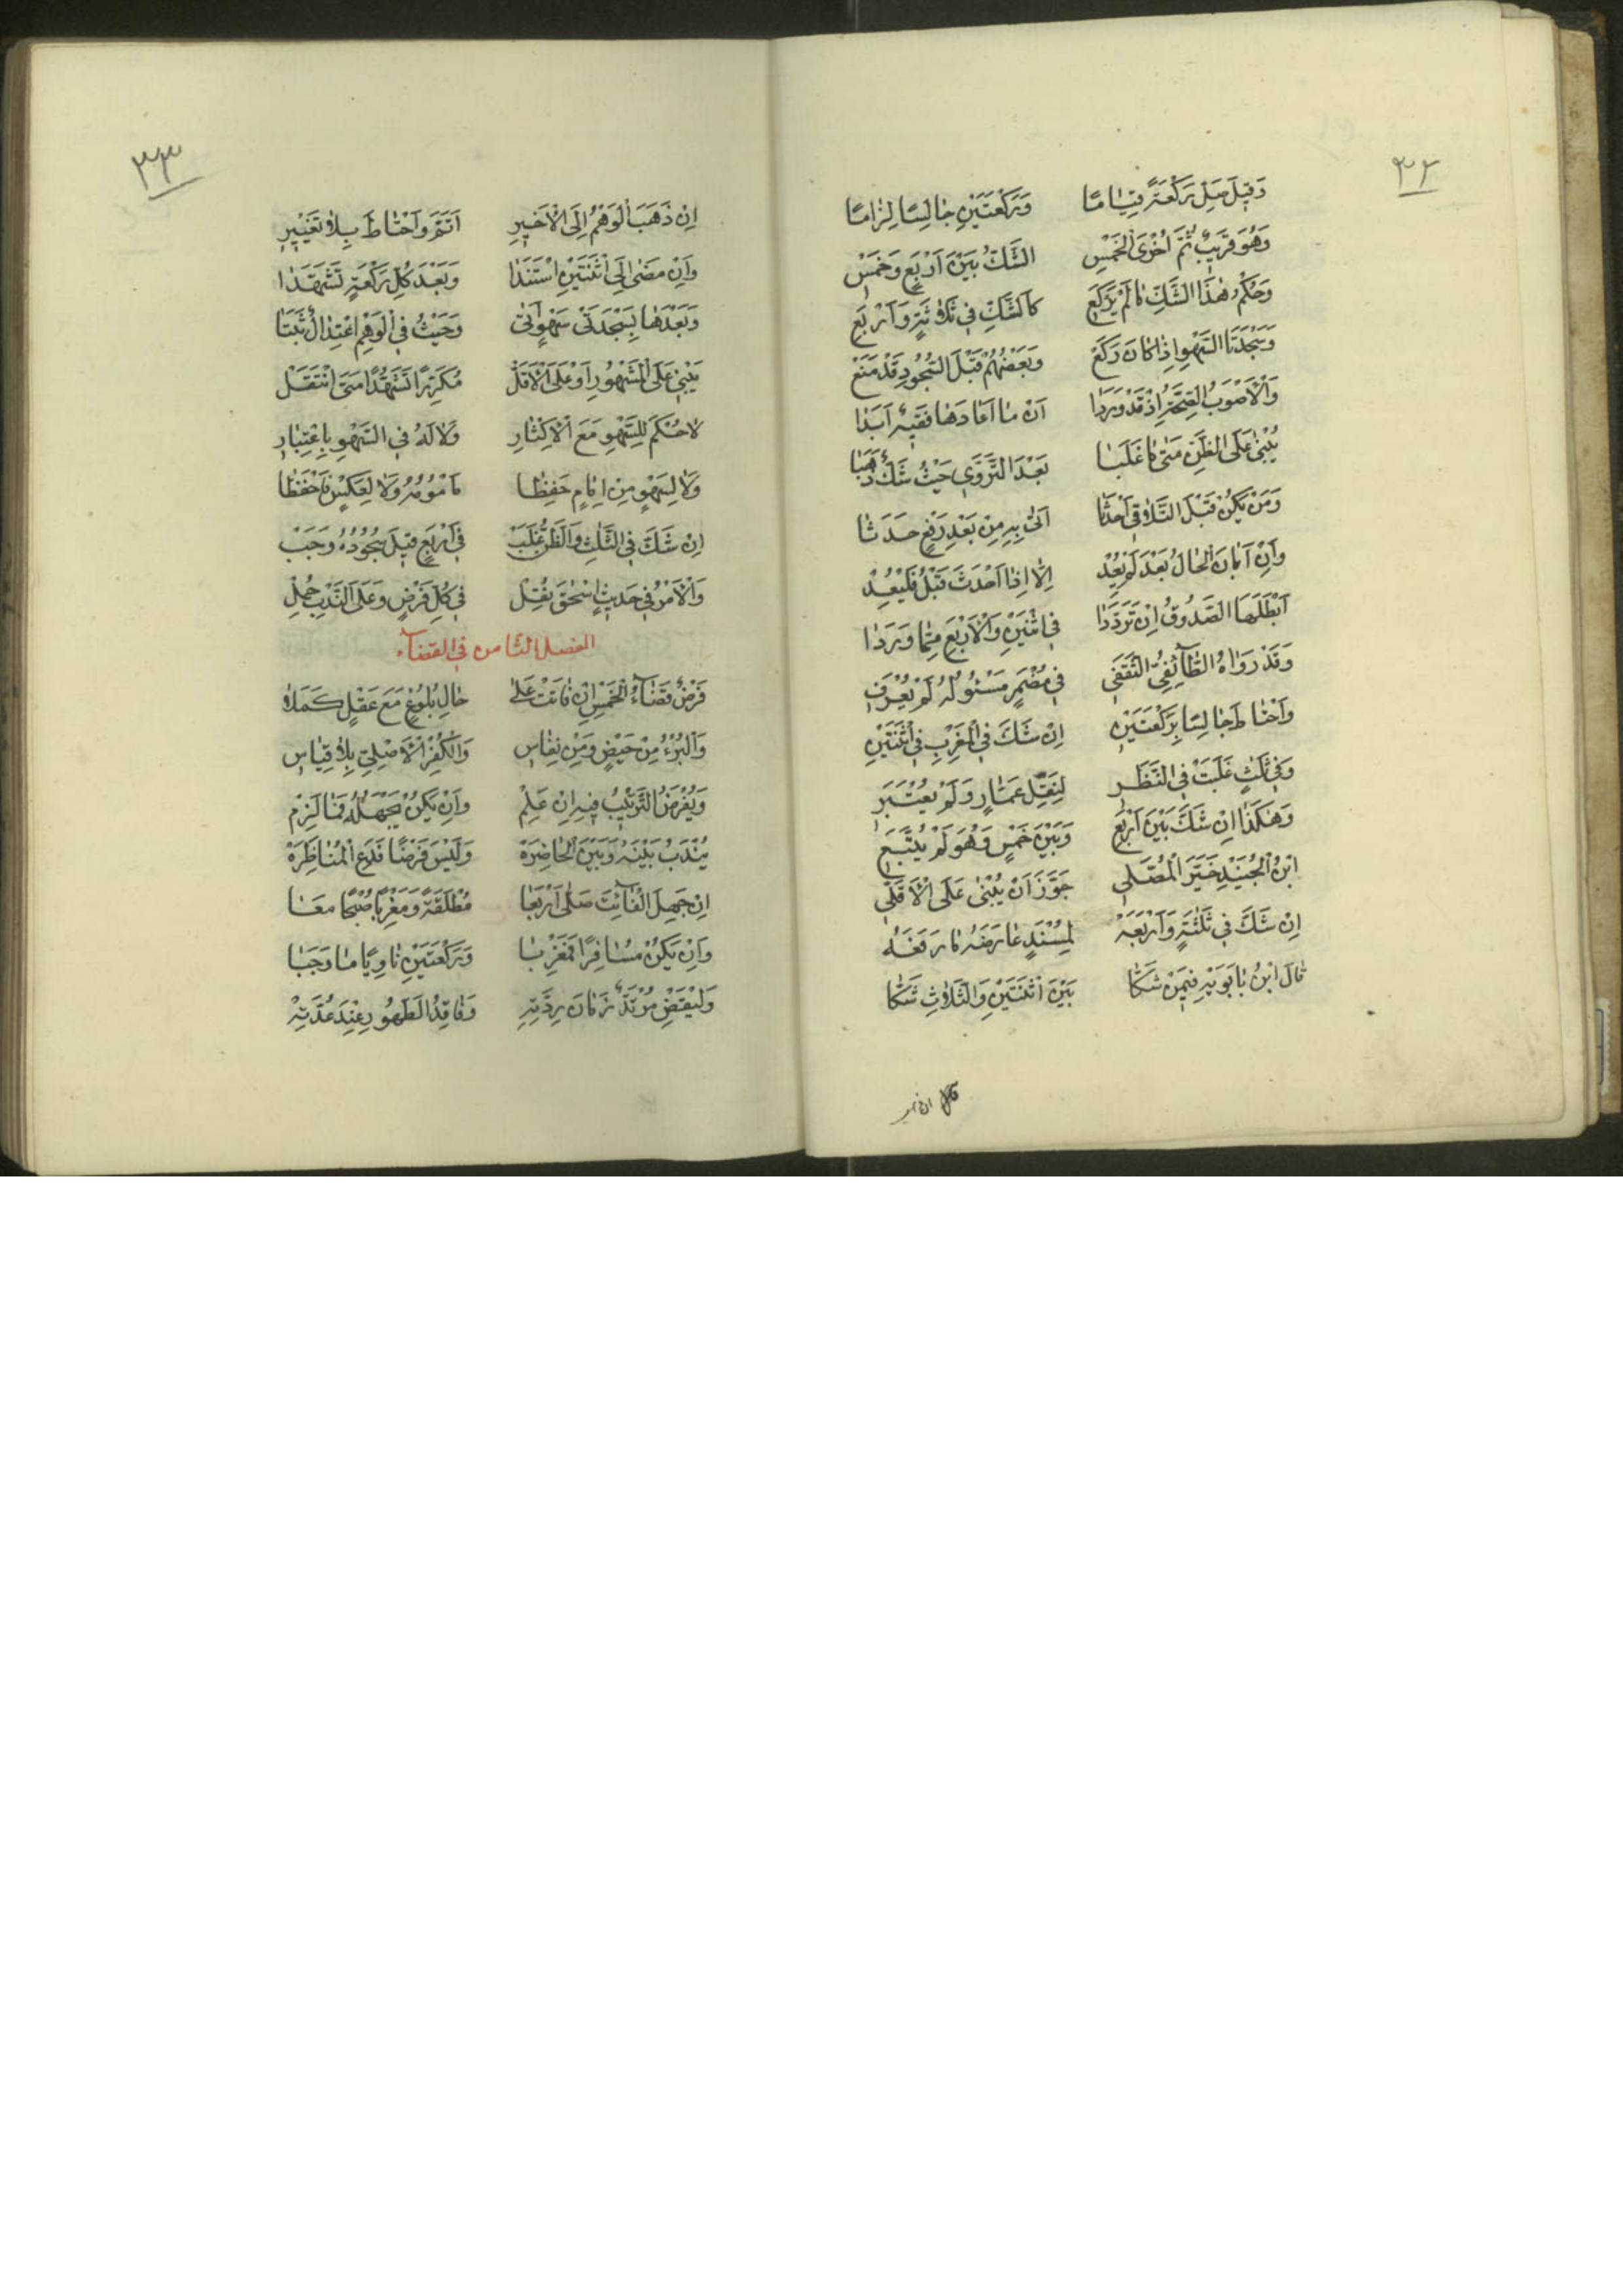 ٣٢
وَقِيلَ صَلِّ رَكْعَةً قِيَامًا وَرَكْعَتَيْنِ جَالِسًا لِزَامًا
وَهُوَ قَرِيبٌ ثُمَّ أُخْرَى الْخَمْسِ الشَّكُّ بَيْنَ أَرْبَعٍ وَخَمْسِ
وَحُكْمُ هٰذَا الشَّكِّ مَا لَمْ يَرْكَعِ كَالشَّكِّ فِي ثَلَاثَةٍ وَأَرْبَعِ
وَسَجْدَتَا السَّهْوِ إِذَا كَانَ رَكَعْ وَبَعْضُهُمْ قَبْلَ السُّجُودِ قَدْ مَنَعْ
وَالْأَصْوَبُ الصِّحَّةُ إِذْ قَدْ وَرَدَا أَنْ مَا أَعَادَهَا فَقِيهٌ أَبَدَا
يُبْنَى عَلَى الظَّنِّ مَتَى مَا غَلَبَا بَعْدَ التَّرَوِّي حَيْثُ شَكٌّ ذَهَبَا
وَمَنْ يَكُنْ قَبْلَ التَّلَافِي أَحْدَثَا أَتَى بِهِ مِنْ بَعْدِ رَفْعٍ حَدَثَا
وَإِنْ أَبَانَ الْحَالُ بَعْدُ لَمْ يُعِدْ إِلَّا إِذَا أَحْدَثَ قَبْلُ فَلْيُعِدْ
أَبْطَلَهَا الصَّدُوقُ إِنْ تَرَدَّدَا فِي اثْنَيْنِ وَالْأَرْبَعِ مِمَّا وَرَدَا
وَقَدْ رَوَاهُ الطَّائِفِيُّ الثَّقَفِي فِي مُضْمَرٍ مَسْئُولُهُ لَمْ يُعْرَفِ
وَاحْتَاطَ جَالِسًا بِرَكْعَتَيْنِ إِنْ شَكَّ فِي الْمَغْرِبِ فِي اثْنَتَيْنِ
وَفِي ثَلَثٍ غَلَبَتْ فِي النَّظَرِ لِنَقْلِ عَمَّارٍ وَلَمْ يُعْتَبَرِ
وَهٰكَذَا إِنْ شَكَّ بَيْنَ أَرْبَعِ وَبَيْنَ خَمْسٍ وَهُوَ لَمْ يُتَّبَعِ
ابْنُ الْجُنَيْدِ خَيَّرَ الْمُصَلِّي جَوَّزَ أَنْ يُبْنَى عَلَى الْأَقَلِّ
إِنْ شَكَّ فِي ثَلٰثَةٍ وَأَرْبَعَهْ لِمُسْنَدٍ عَارَضَهُ مَا رَفَعَهْ
قَالَ ابْنُ بَابَوَيْهِ فِيمَنْ شَكَّا بَيْنَ اثْنَتَيْنِ وَالثَّلَاثِ شَكَّا
٣٣
إِنْ ذَهَبَ الْوَهْمُ إِلَى الْأَخِيرِ أَتَمَّ وَاحْتَاطَ بِلَا تَغْيِيرِ
وَإِنْ مَضَى إِلَى اثْنَتَيْنِ اسْتَنَدَا وَبَعْدَ كُلِّ رَكْعَةٍ تَشَهَّدَا
وَبَعْدَهَا بِسَجْدَتَيْ سَهْوٍ أَتَى وَحَيْثُ فِي الْوَهْمِ اعْتِدَالٌ ثَبَتَا
يَبْنِي عَلَى الْمَشْهُورِ أَوْ عَلَى الْأَقَلّْ مُكَرِّرًا تَشَهُّدًا مَتَى انْتَقَلْ
لَا حُكْمَ لِلسَّهْوِ مَعَ الْإِكْثَارِ وَلَا لَهُ فِي السَّهْوِ بِاعْتِبَارِ
وَلَا لِسَهْوٍ مِنْ إِمَامٍ حَفِظَا مَأْمُومُهُ وَلَا لِعَكْسٍ فَاحْفَظَا
إِنْ شَكَّ فِي الثَّلْثِ وَالظَّنُّ غَلَبْ فِي أَرْبَعٍ قِيلَ سُجُودُهُ وَجَبْ
وَالْأَمْرُ فِي حَدِيثِ إِسْحٰقَ نُقِلْ فِي كُلِّ فَرْضٍ وَعَلَى النَّدْبِ حُمِلْ
الفصل الثامن في القضاء
فَرْضٌ قَضَاءُ الْخَمْسِ إِنْ فَاتَتْ عَلَى حَالِ بُلُوغٍ مَعَ عَقْلٍ كَمَلَا
وَالْبُرْءِ مِنْ حَيْضٍ وَمِنْ نِفَاسِ وَالْكُفْرِ الْأَصْلِيِّ بِلَا قِيَاسِ
وَيُفْرَضُ التَّرْتِيبُ فِيهِ إِنْ عَلِمْ وَإِنْ يَكُنْ يَجْهَلُهُ فَمَا لَزِمْ
يُنْدَبُ بَيْنَهُ وَبَيْنَ الْحَاضِرَهْ وَلَيْسَ فَرْضًا فَدَعِ الْمُنَاظَرَهْ
إِنْ جَهِلَ الْفَائِتَ صَلَّى أَرْبَعَا مُطْلَقَةً وَمَغْرِبًا صُبْحًا مَعَا
وَإِنْ يَكُنْ مُسَافِرًا فَمَغْرِبَا وَرَكْعَتَيْنِ نَاوِيًا مَا وَجَبَا
وَلْيَقْضِ مُرْتَدٌّ زَمَانَ رِدَّتِهِ وَفَاقِدُ الطَّهُورِ عِنْدَ عُدَّتِهْ